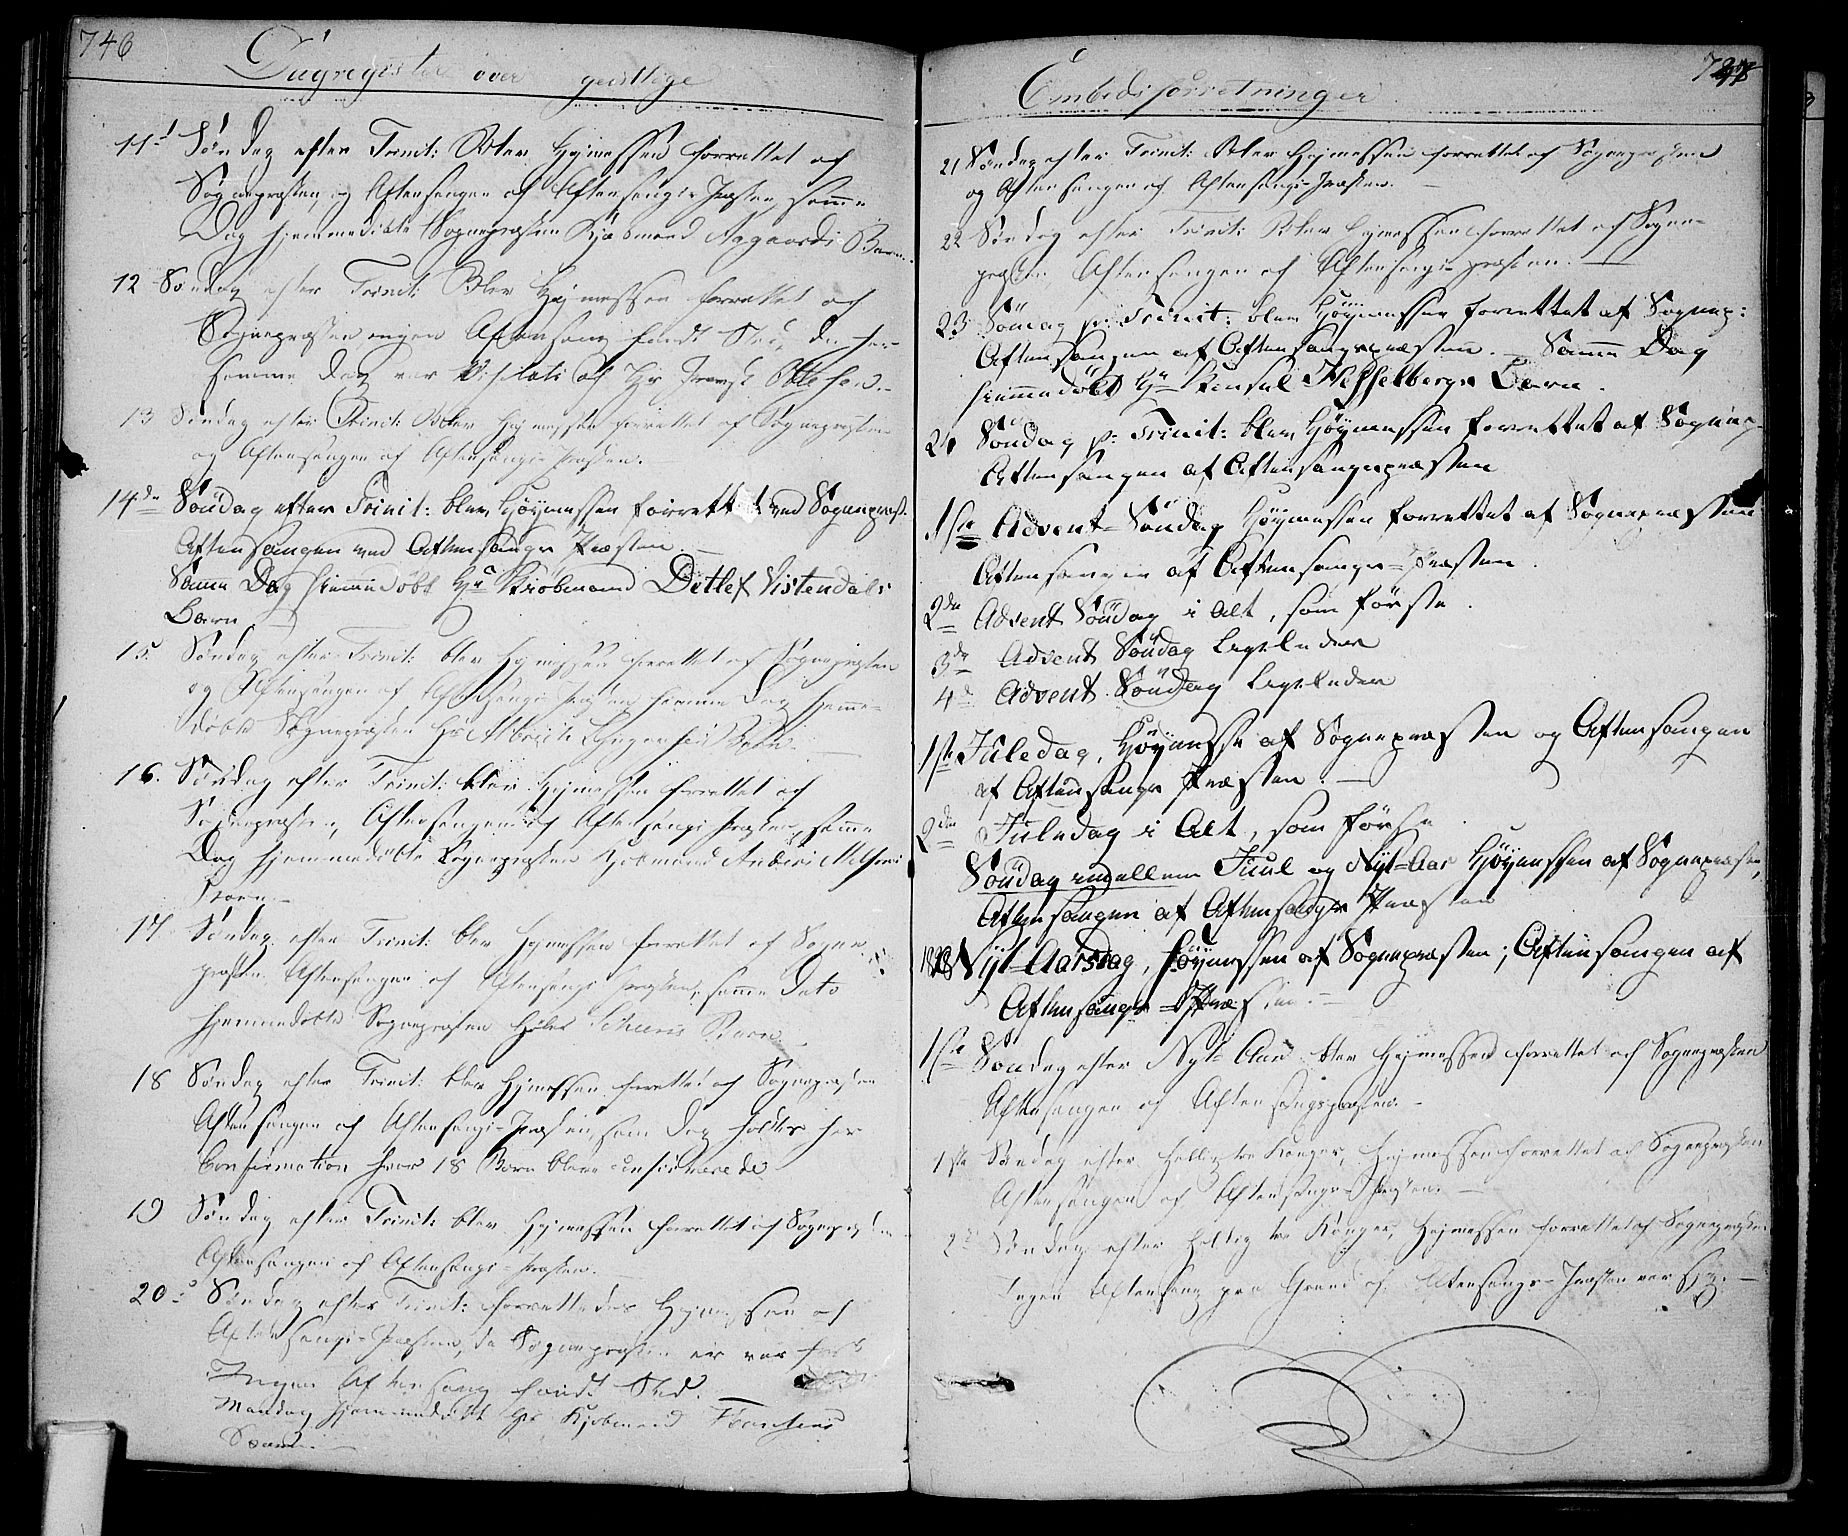 746
Dagregister over geistlige
11te Søndag efter Trinit: Blev Højmessen forrettet af
Sognepræsten, og Aftensangen af Aftensangs-Præsten, samme
Dag hjemmedøbte Sognepræsten Kjøbmand Aagaards Barn.
12 Søndag efter Trinit: Blev Højmessen forrettet af
Sognepræsten ingen Aftensang fandt Sted, da her
samme Dag var Visitats af Hr Provst
13 Søndag efter Trinit: Blev Højmessen forrettet af Sognepræsten
og Aftensangen af Aftensangs-Præsten.
14de Søndag efter Trinit: blev Høÿmessen forrettet ved Sognepræst.
Aftensangen ved Aftensangs Præsten. —
Samme Dag hiemmedøbt Hr Kiøbmand Detlef Vistendals
Barn.
15. Søndag efter Trinit: blev Højmessen forrettet af Sognepræsten
og Aftensangen af Aftensangs Præsten samme Dag hjemme-
døbte Sognepræsten Hr Barn. —
16. Søndag efter Trinit: blev Højmessen forrettet af
Sognepræsten, Aftensangen af Aftensangs Præsten, samme
Dag hjemmedøbte Sognepræsten Kjøbmand Anders Nielsens
Barn. —
17 Søndag efter Trinit: blev Højmessen forrettet af Sogne-
præsten Aftensangen af Aftensangs Præsten, samme Dato
hjemmedøbte Sognepræsten Barn
18 Søndag efter Trinit: blev Højmessen forrettet af Sognepræsten
Aftensangen af Aftensangs-Præsten, samme Dag holdtes her
Confirmation hvor 18 Børn bleve confirmerede
19 Søndag efter Trinit: blev Højmessen forrettet af Sognepræsten
Aftensangen af Aftensangs-Præsten.
20de Søndag efter Trinit: forrettedes Højmessen af
Aftensangs-Præsten, da Sognepræsten ei var frisk
Ingen Aftensang fandt Sted. —
Mandag hjemmedøbt Hr Kjøbmand
Søn. —
Embedsforretninger
21 Søndag efter Trinit: Blev Højmessen forrettet af Sognepræsten
og Aftensangen af Aftensangs-Præsten. —
22 Søndag efter Trinit: Blev Højmessen forrettet af Sogne-
præsten Aftensangen af Aftensangs-præsten. —
23 Søndag p: Trinit: blev Høÿmessen forrettet af Sognep:
Aftensangen af Aftensangspræsten. — Samme Dag
hiemmedøbt Hr Konsul Hesselbergs Barn.
24 Søndag p: Trinit: blev Høÿmessen forrettet af Sognep.
Aftensangen af Aftensangspræsten
1ste Advent-Søndag Høÿmessen forrettet af Sognepræsten
Aftensangen af Aftensangs-Præsten.
2den Advent Søndag i Alt, som første.
3de Advent Søndag ligeledes
4de Advent Søndag ligeledes
1ste Juledag, Høÿmesse af Sognepræsten og Aftensangen
af Aftensangs Præsten. —
2den Juledag i Alt, som første.
Søndag imellem Juul og Nÿt-Aar Høÿmessen af Sognepræsten,
Aftensangen af Aftensangs Præsten
Nÿt-Aarsdag, Høÿmessen af Sognepræsten; Aftensangen af
Aftensangs-Præsten. —
1ste Søndag efter Nyt-Aar blev Højmessen forrettet af Sognepræsten
Aftensangen af Aftensangspræsten. —
1ste Søndag efter Hellig tre Konger, Højmessen forrettet af Sognepræsten
Aftensangen af Aftensangs-Præsten. —
2de Søndag efter Hellig tre Konger, Højmessen forrettet af Sognepræsten
Ingen Aftensang paa Grund af Aftensangs-Præsten var syg. —